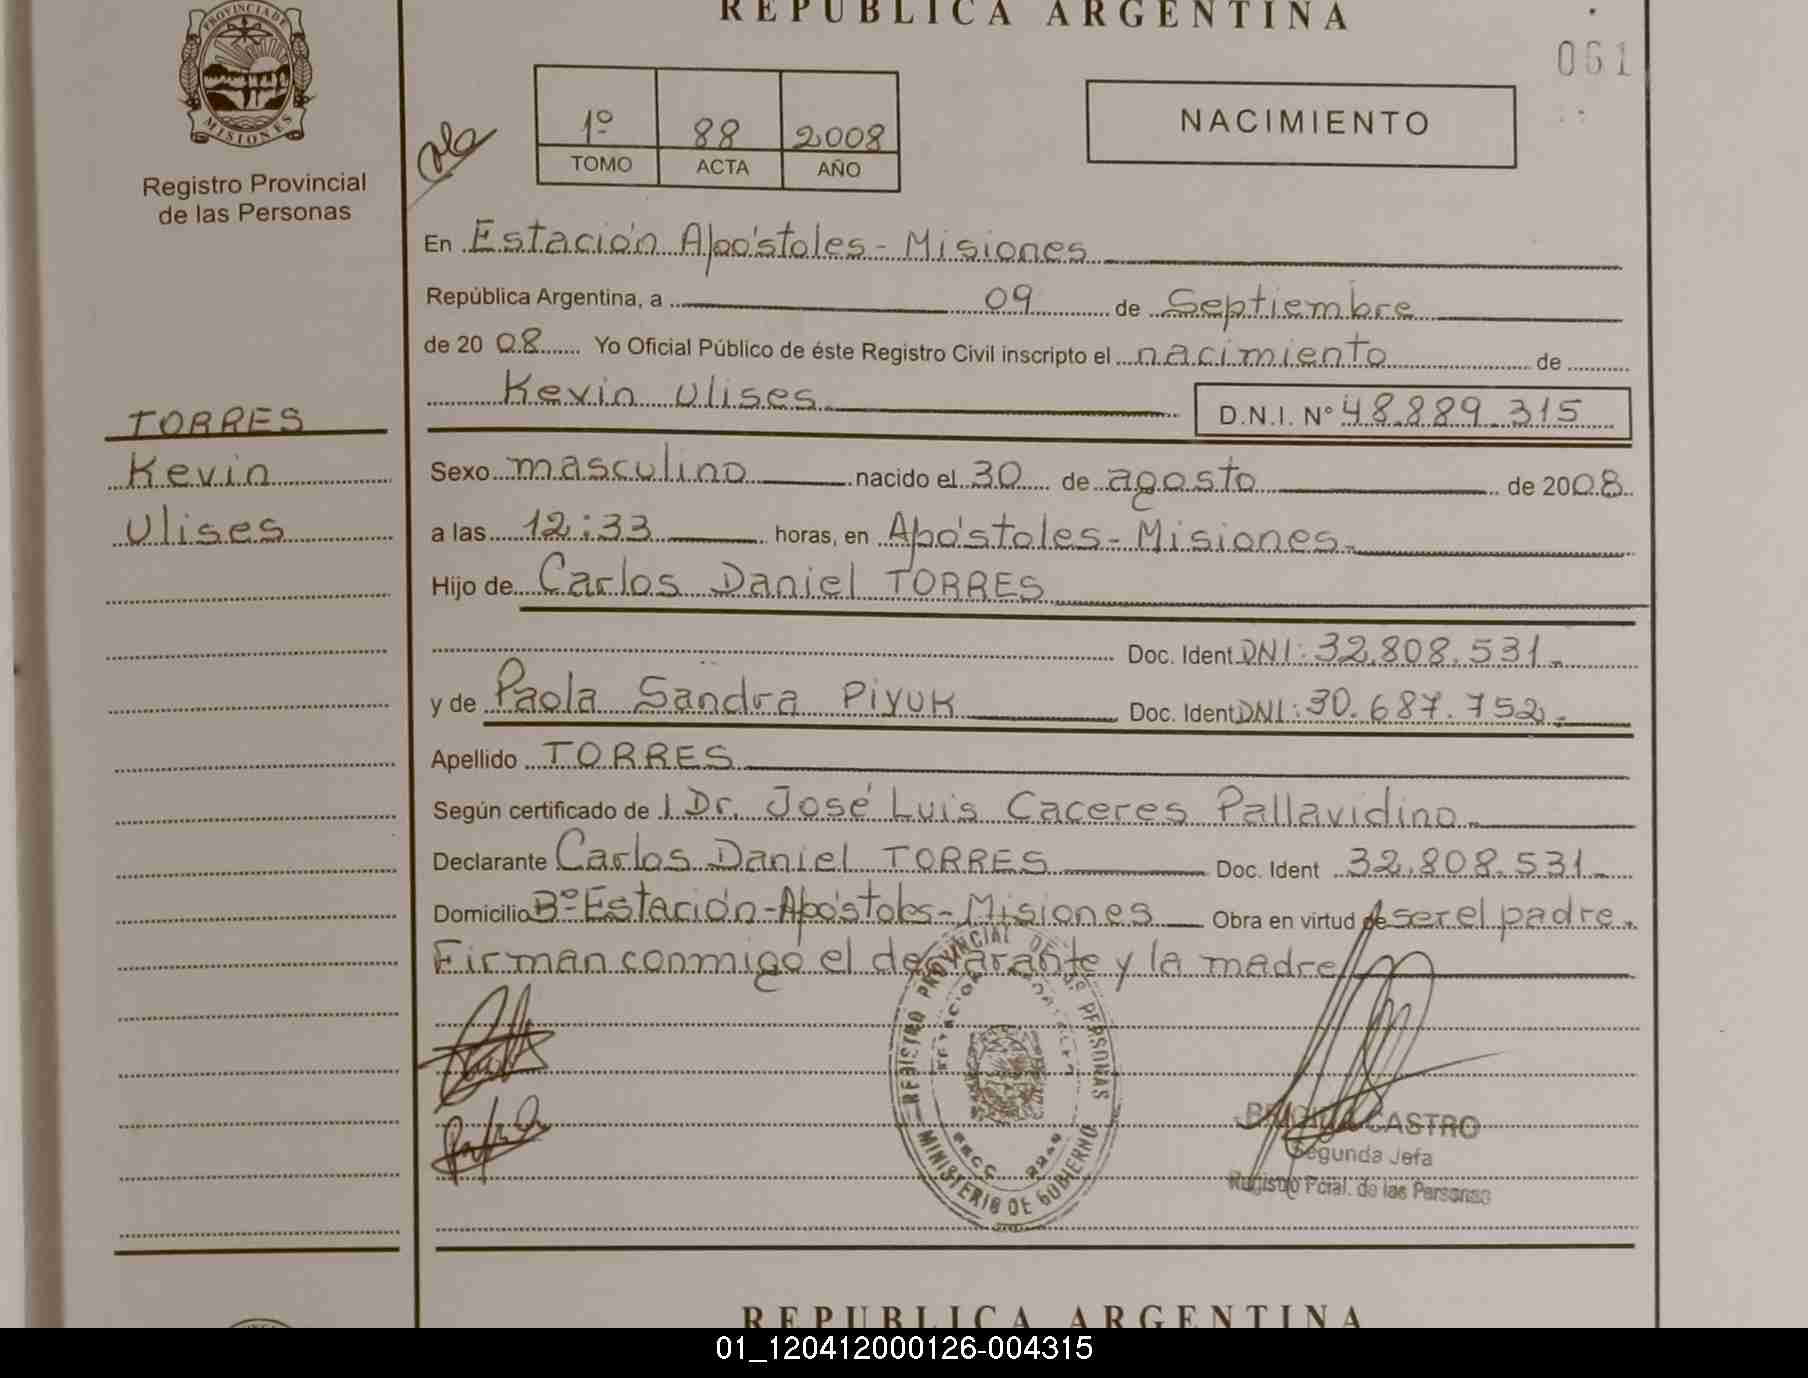 REPUBLICA ARGENTINA
061
PROVINCIA DE
MISIONES
Registro Provincial
de las Personas
1º 88 2008
TOMO ACTA AÑO
NACIMIENTO
En Estación Apóstoles - Misiones
República Argentina, a 09 de Septiembre
de 2008 Yo Oficial Público de éste Registro Civil inscripto el nacimiento de
Kevin Ulises D.N.I. Nº 48.889.315
TORRES
Kevin
Ulises
Sexo masculino nacido el 30 de agosto de 2008
a las 12:33 horas, en Apóstoles - Misiones.
Hijo de Carlos Daniel TORRES
Doc. Ident DNI: 32.808.531.
y de Paola Sandra PIYUK Doc. Ident DNI: 30.687.752.
Apellido TORRES
Según certificado de l Dr. José Luis Caceres Pallavidino
Declarante Carlos Daniel TORRES Doc. Ident 32.808.531.
Domicilio Bº Estación - Apóstoles - Misiones Obra en virtud de ser el padre.
Firman conmigo el declarante y la madre
REGISTRO PROVINCIAL DE LAS PERSONAS
MINISTERIO DE GOBIERNO
CASTRO
Segunda Jefa
Registro Pcial. de las Personas
REPUBLICA ARGENTINA
01_120412000126-004315